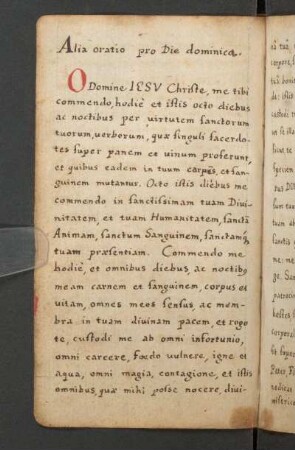 Alia oratio pro Die dominica.
O Domine IESV Christe, me tibi
commendo, hodiè et istis octo diebus
ac noctibus per virtutem sanctorum
tuorum, verborum, quæ singuli sacerdo-
tes super panem et uinum proferunt,
et quibus eadem in tuum corpus, et san-
guinem mutantur. Octo istis diebus me
commendo in sanctissimam tuam Divi-
nitatem, et tuam Humanitatem, sanctã
Animam, sanctum Sanguinem, sanctamq́
tuam præsentiam. Commendo me
hodiè, et omnibus diebus, ac noctibq
meam carnem et sanguinem, corpus et
uitam, omnes meos sensus, ac mem-
bra in tuam divinam pacem, et rogo
te, custodi me ab omni infortunio,
omni carcere, Fœdo vulnere, igne et
aqua, omni magia, contagione, et istis
omnibus, quæ mihi posse nocere, divi-